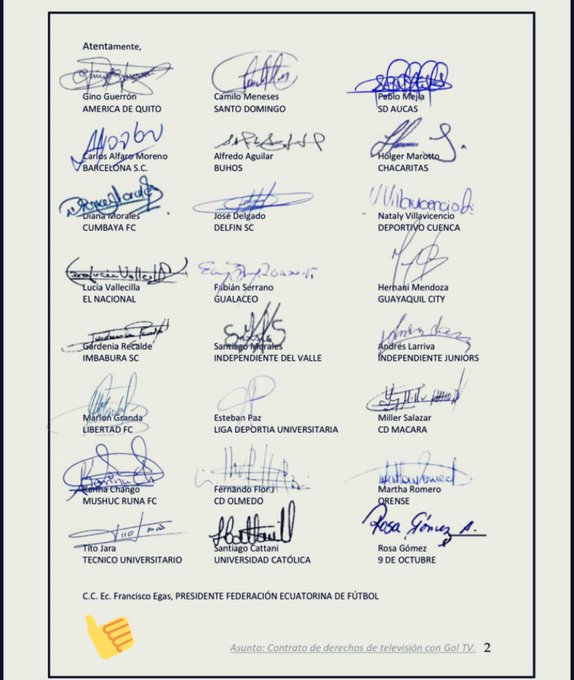 Atentamente,
Gino Guerrón
AMERICA DE QUITO
Camilo Meneses
SANTO DOMINGO
Pablo Mejía
SD AUCAS
Carlos Alfaro Moreno
BARCELONA S.C.
Alfredo Aguilar
BUHOS
Holger Marotto
CHACARITAS
Diana Morales
CUMBAYA FC
José Delgado
DELFIN SC
Nataly Villavicencio
DEPORTIVO CUENCA
Lucía Vallecilla
EL NACIONAL
Fabián Serrano
GUALACEO
Hernani Mendoza
GUAYAQUIL CITY
Gardenia Recalde
IMBABURA SC
Santiago Morales
INDEPENDIENTE DEL VALLE
Andrés Larriva
INDEPENDIENTE JUNIORS
Marlon Granda
LIBERTAD FC
Esteban Paz
LIGA DEPORTIA UNIVERSITARIA
Miller Salazar
CD MACARA
Karina Chango
MUSHUC RUNA FC
Fernando Flor
CD OLMEDO
Martha Romero
ORENSE
Tito Jara
TECNICO UNIVERSITARIO
Santiago Cattani
UNIVERSIDAD CATÓLICA
Rosa Gómez A.
Rosa Gómez
9 DE OCTUBRE
C.C. Ec. Francisco Egas, PRESIDENTE FEDERACIÓN ECUATORINA DE FÚTBOL
Asunto: Contrato de derechos de televisión con Gol TV. 2